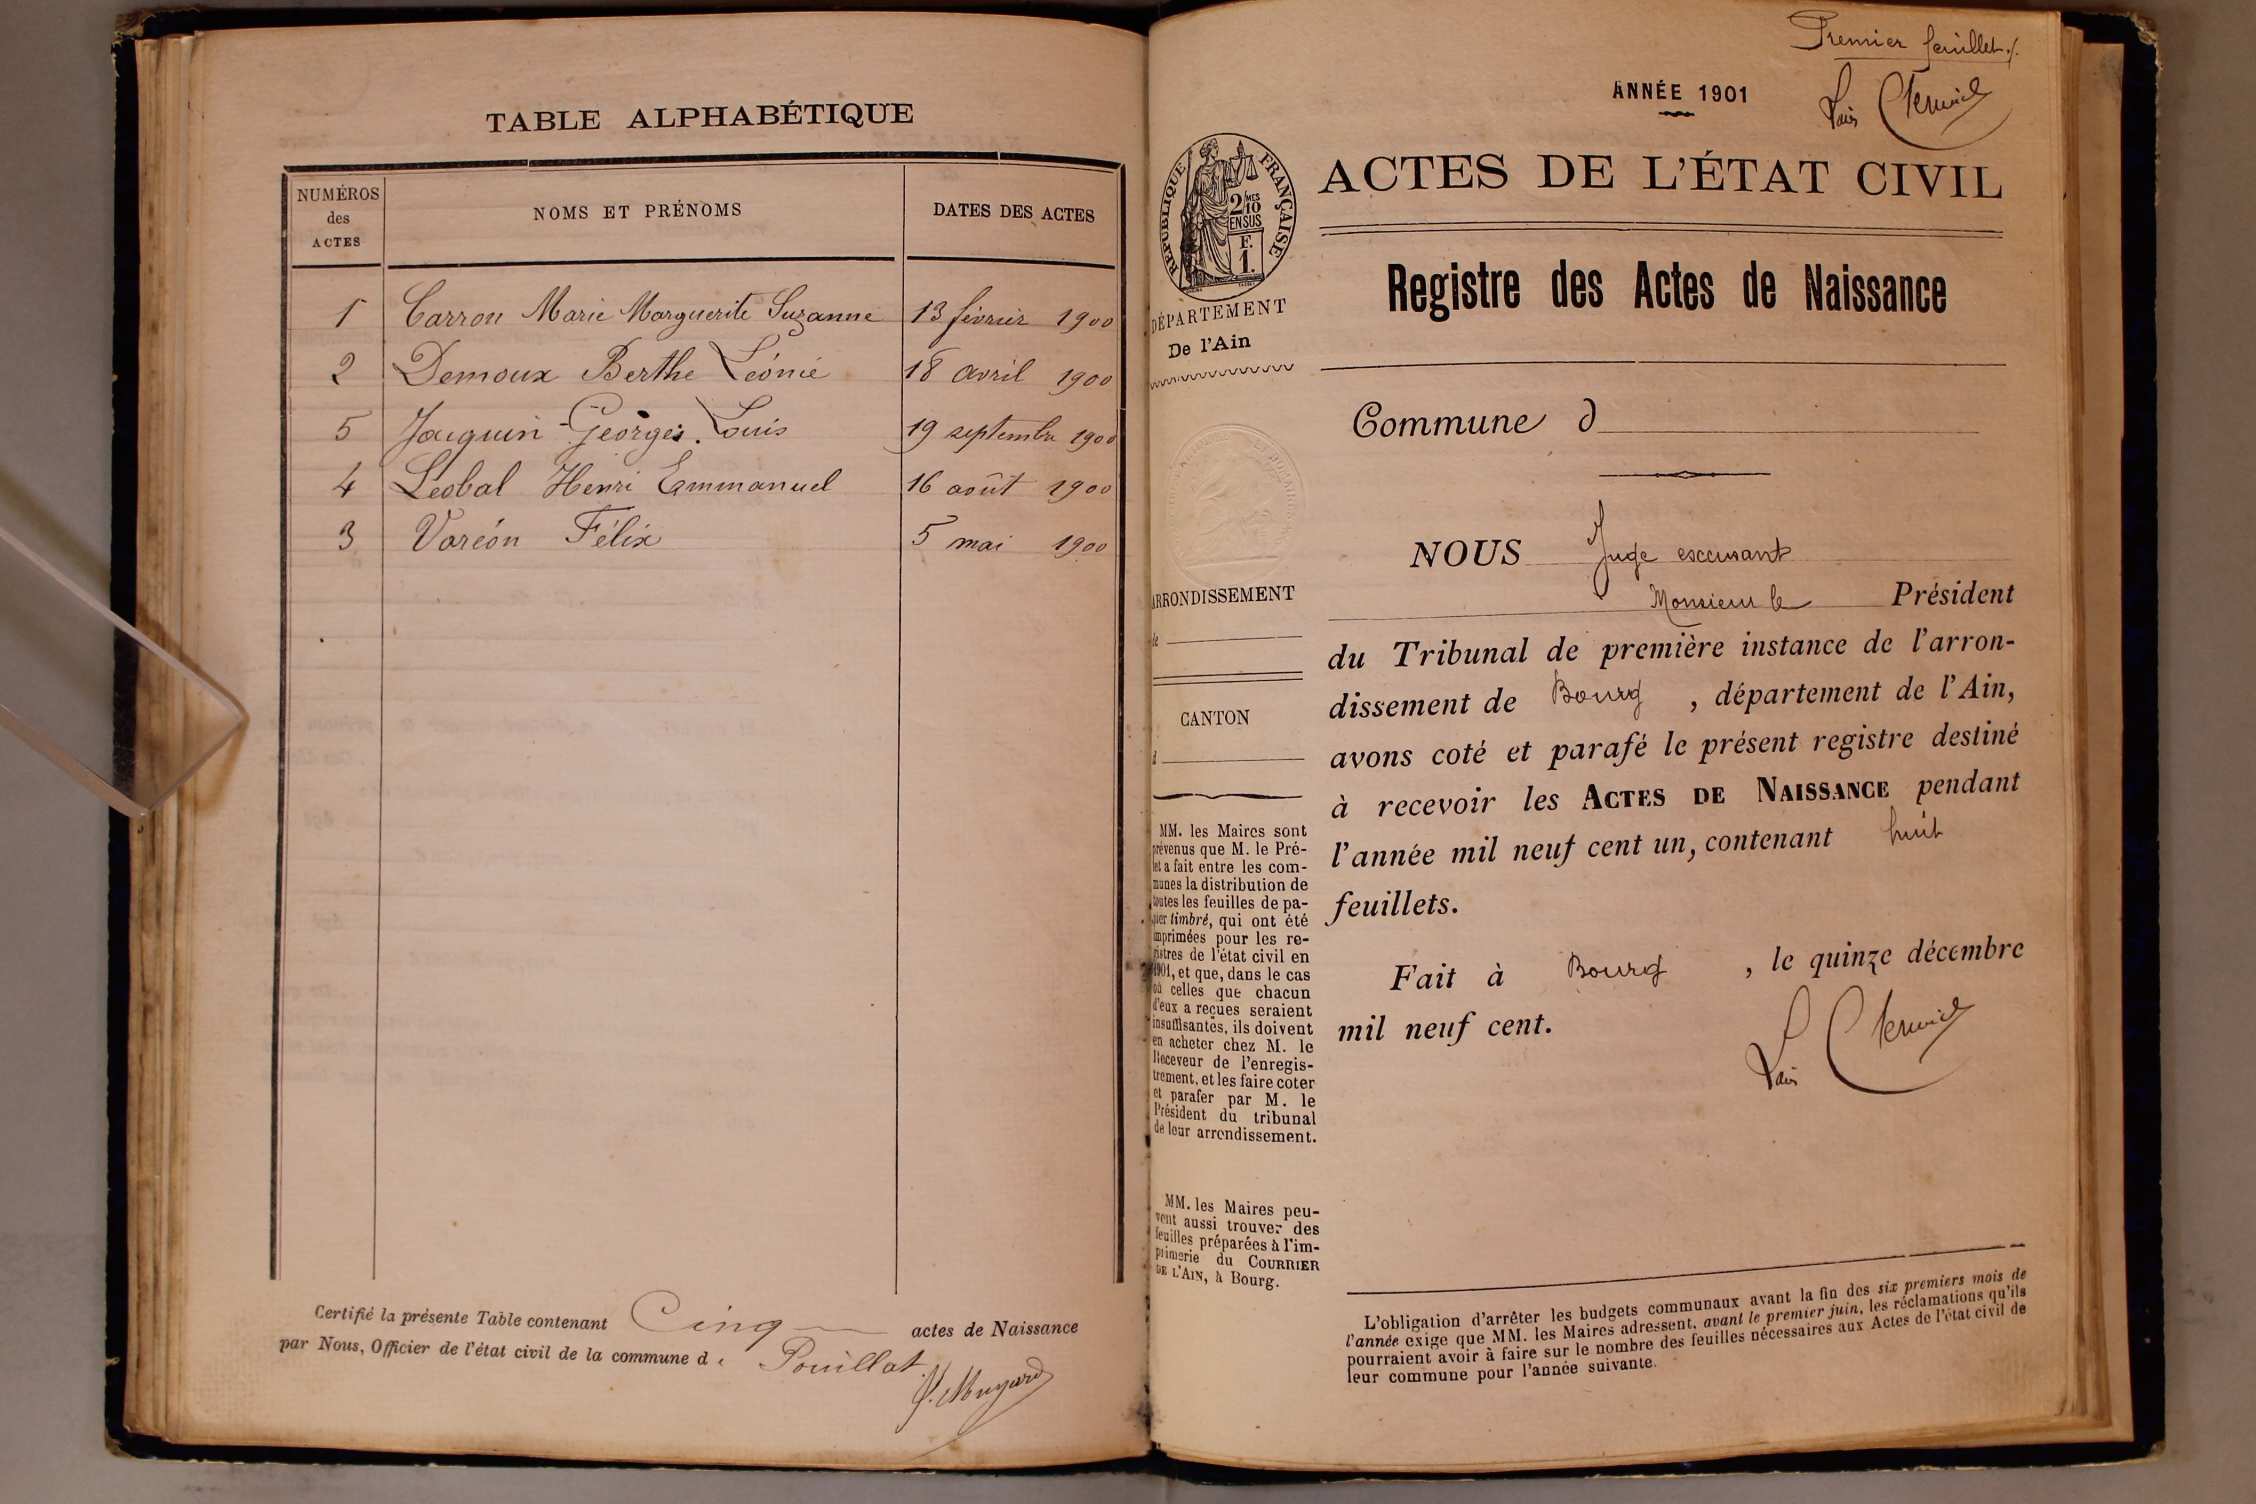 TABLE ALPHABÉTIQUE
NUMÉROS des ACTES NOMS ET PRÉNOMS DATES DES ACTES
1 Carron Marie Marguerite Suzanne 13 février 1900
2 Demoux Berthe Léonie 18 avril 1900
5 Jacquin Georges Louis 19 septembre 1900
4 Léobal Henri Emmanuel 16 août 1900
3 Varéon Félix 5 mai 1900
Certifié la présente Table contenant Cinq actes de Naissance
par Nous, Officier de l'état civil de la commune de Pouillat
Premier feuillet
ANNÉE 1901
RÉPUBLIQUE FRANÇAISE
2/10 MES
EN SUS
F.
1.
DÉPARTEMENT
De l'Ain
ARRONDISSEMENT
de
CANTON
d
MM. les Maires sont
prévenus que M. le Pré-
fet a fait entre les com-
munes la distribution de
toutes les feuilles de pa-
pier timbré, qui ont été
imprimées pour les re-
gistres de l'état civil en
1901, et que, dans le cas
où celles que chacun
d'eux a reçues seraient
insuffisantes, ils doivent
en acheter chez M. le
Receveur de l'enregis-
trement, et les faire coter
et parafer par M. le
Président du tribunal
de leur arrondissement.
MM. les Maires peu-
vent aussi trouver des
feuilles préparées à l'im-
primerie du COURRIER
DE L'AIN, à Bourg.
ACTES DE L'ÉTAT CIVIL
Registre des Actes de Naissance
Commune d
NOUS Juge excusant
Monsieur le Président
du Tribunal de première instance de l'arron-
dissement de Bourg, département de l'Ain,
avons coté et parafé le présent registre destiné
à recevoir les ACTES DE NAISSANCE pendant
l'année mil neuf cent un, contenant huit
feuillets.
Fait à Bourg, le quinze décembre
mil neuf cent.
L'obligation d'arrêter les budgets communaux avant la fin des six premiers mois de
l'année exige que MM. les Maires adressent, avant le premier juin, les réclamations qu'ils
pourraient avoir à faire sur le nombre des feuilles nécessaires aux Actes de l'état civil de
leur commune pour l'année suivante.